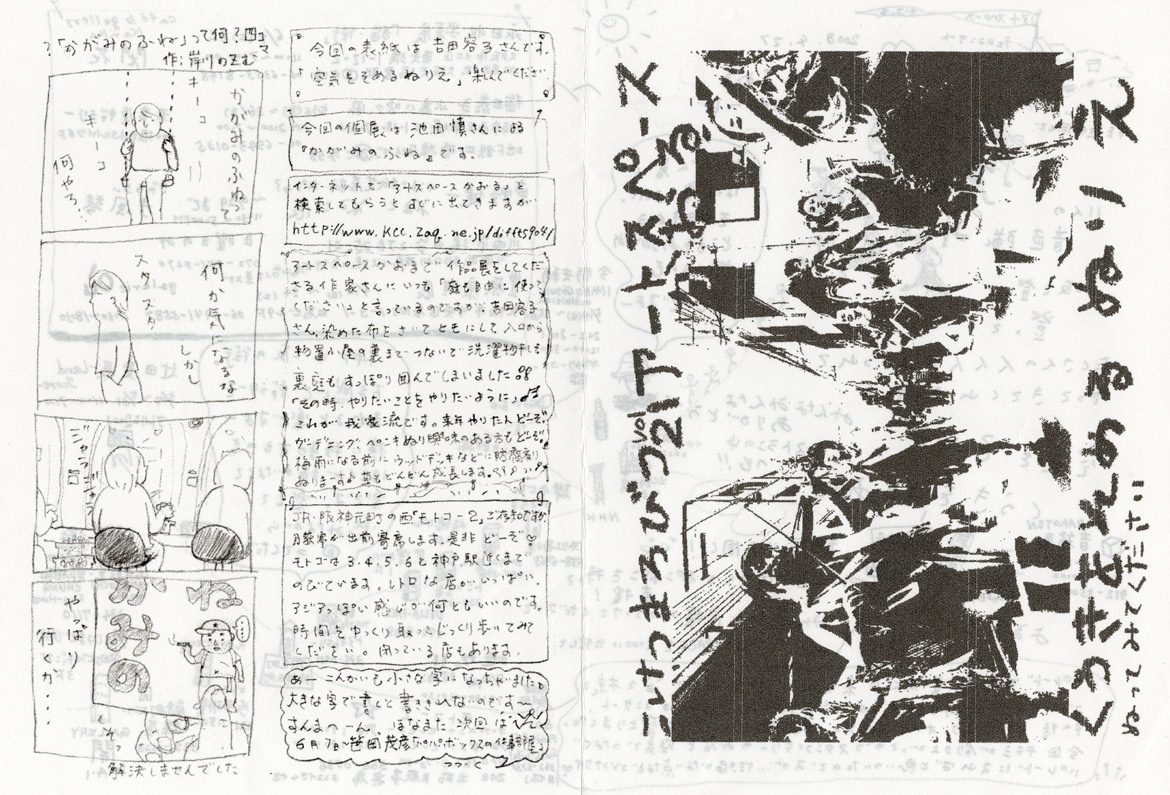 「かがみのふね」って何?四コマ
作:岸川のぞむ
かがみのふねって
キーコ
キーコ
何やろ…
何か気になるな
しかし
スタスタ
やっぱり
行くか・・・
解決しませんでした
今回の表紙は吉田容子さんです。
「空気をそめるぬりえ」楽しんでください
今回の個展は池田慎さんによる
『かがみのふね』です。
インターネットで「アートスペースかおる」と
検索してもらうとすぐに出てきますが
http://www.kcc.zaq.ne.jp/dffts904/
アートスペースかおるで作品展をしてくだ
さる作家さんにいつも「庭も自由に使って
ください」と言っているのですが、吉田容子
さん、染めた布をさいてヒモにして入口から
物置小屋の裏までつないで洗濯物干しも
裏庭もすっぽり囲んでしまいました
「その時やりたいことをやりたいように」
これが我家流です。来年やりたい人どーぞ。
ガーデニング、ペンキぬり興味のある方もどーぞ。
梅雨になる前にウッドデッキなどに防腐剤
ぬりまーす。苗もどんどん成長します。
JR・阪神元町の西「モトコー2」ご存知ですか
月亭家が出前寄席します。是非どーぞ♡
モトコーは3.4.5.6と神戸駅近くまで
のびています。レトロな店がいっぱい。
アジアっぽい感じが何ともいいのです。
時間をゆっくり取ってじっくり歩いてみて
ください。閉っている店もあります。
あーこんかいも小さな字になっちゃいました。
大きな字で書くと書ききれないのです〜
すんまへーん。ほなまた次回は
6月7日〜笹田茂彦「パパボックスの仕事部屋」
つづく
いけつまろびつ
vol.21
アートスペース
かおる
くうきをそめる ぬりえ
ぬってみてください